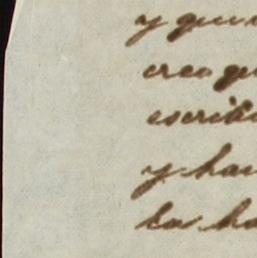 y qui
creo qu
escribi
y hau
la ha